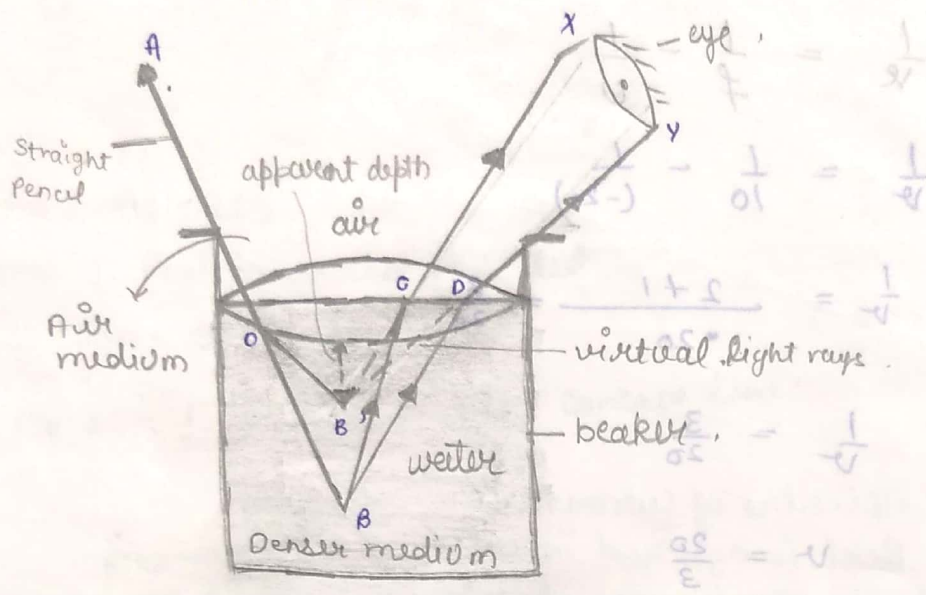 X
eye.
A
Y
Straight
Pencil
apparent depth
air
C
D
O
Air
medium
virtual light rays.
B'
beaker.
water
B
Denser medium